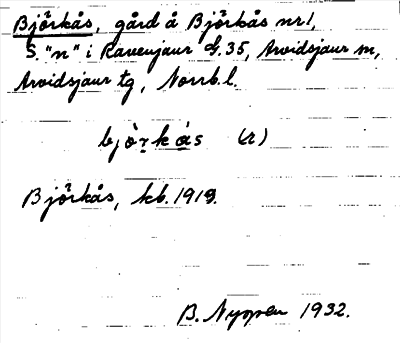 Björkås, gård å Björkås nr 1,
S. "n" i Ravenjaur G. 35, Arvidsjaur sn,
Arvidsjaur tg, Norrb. l.
bjò̤rkås (r)
Björkås, kb. 1919.
B. Nygren 1932.